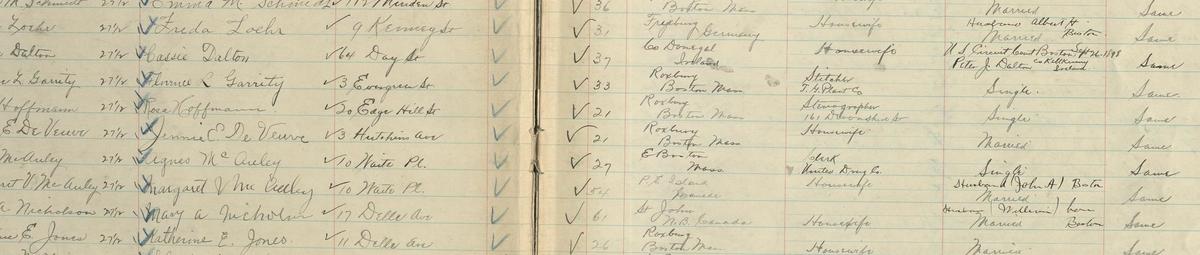 Schmidt 27 1/2 Emma M Schmidt 117 Minden St 36 Boston Mass Married Same
Loehr 27 1/2 Freda Loehr 9 Kenney St 31 Freyburg Germany Housewife Husband Albert H. Boston Married Same
Dalton 27 1/2 Cassie Dalton 64 Day St 37 Co Donegal Ireland Housewife U S Circuit Court Boston Sept 26 1898 Peter J. Dalton Co Kilkenny Ireland Same
e L. Garrity 27 1/2 Florence L Garrity 3 Evergreen St 33 Roxbury Boston Mass Stitcher T. G. Plant Co Single. Same
Hoffmann 27 1/2 Rose Hoffmann 20 Edge Hill St 21 Roxbury Boston Mass Stenographer 161 Devonshire St Single Same
E De Veuve 27 1/2 Jennie E. De Veuve 3 Hutchins Ave 21 Roxbury Boston Mass Housewife Married Same
McAuley 27 1/2 Agnes McAuley 10 Waite Pl. 27 E Boston Mass Clerk United Drug Co. Single Same
ret V. McAuley 27 1/2 Margaret V McAuley 10 Waite Pl. 54 P. E Island Canada Housewife Husband (John A) Boston Married Same
a Nicholson 27 1/2 Mary A Nicholson 17 Delle Ave 61 St John N.B. Canada Housewife Husband William) born Boston Married Same
ne E. Jones 27 1/2 Katherine E. Jones. 11 Delle Ave 26 Roxbury Boston Mass Housewife Married Same